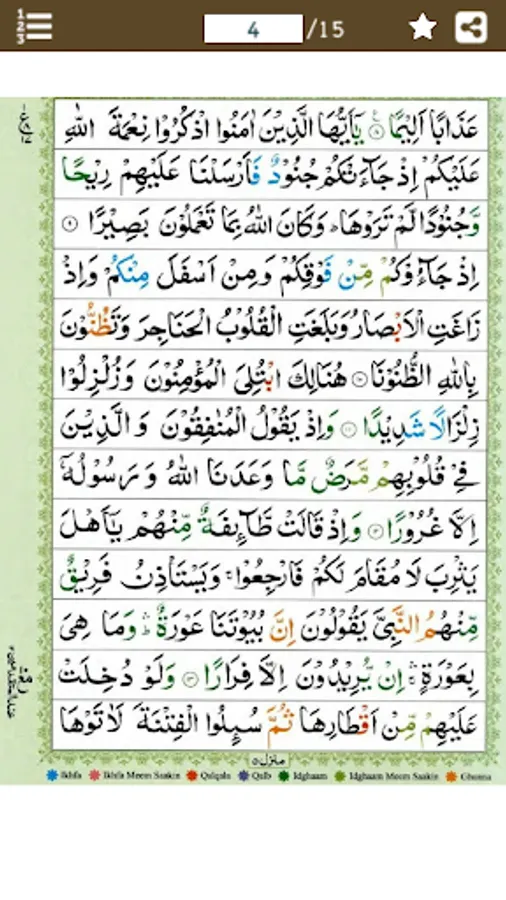 4 /15
عَذَابًا اَلِیْمًا ۝۸ یٰۤاَیُّهَا الَّذِیْنَ اٰمَنُوا اذْكُرُوْا نِعْمَةَ اللّٰهِ
عَلَیْكُمْ اِذْ جَآءَتْكُمْ جُنُوْدٌ فَاَرْسَلْنَا عَلَیْهِمْ رِیْحًا
وَّجُنُوْدًا لَّمْ تَرَوْهَا ؕ وَكَانَ اللّٰهُ بِمَا تَعْمَلُوْنَ بَصِیْرًا ۝۹
اِذْ جَآءُوْكُمْ مِّنْ فَوْقِكُمْ وَمِنْ اَسْفَلَ مِنْكُمْ وَاِذْ
زَاغَتِ الْاَبْصَارُ وَبَلَغَتِ الْقُلُوْبُ الْحَنَاجِرَ وَتَظُنُّوْنَ
بِاللّٰهِ الظُّنُوْنَا ۝۱۰ هُنَالِكَ ابْتُلِیَ الْمُؤْمِنُوْنَ وَزُلْزِلُوْا
زِلْزَالًا شَدِیْدًا ۝۱۱ وَاِذْ یَقُوْلُ الْمُنٰفِقُوْنَ وَالَّذِیْنَ
فِیْ قُلُوْبِهِمْ مَّرَضٌ مَّا وَعَدَنَا اللّٰهُ وَرَسُوْلُهٗۤ
اِلَّا غُرُوْرًا ۝۱۲ وَاِذْ قَالَتْ طَّآىِٕفَةٌ مِّنْهُمْ یٰۤاَهْلَ
یَثْرِبَ لَا مُقَامَ لَكُمْ فَارْجِعُوْا ۚ وَیَسْتَاْذِنُ فَرِیْقٌ
مِّنْهُمُ النَّبِیَّ یَقُوْلُوْنَ اِنَّ بُیُوْتَنَا عَوْرَةٌ ۛؕ وَمَا هِیَ
بِعَوْرَةٍ ۛۚ اِنْ یُّرِیْدُوْنَ اِلَّا فِرَارًا ۝۱۳ وَلَوْ دُخِلَتْ
عَلَیْهِمْ مِّنْ اَقْطَارِهَا ثُمَّ سُىِٕلُوا الْفِتْنَةَ لَاٰتَوْهَا
منزل ۵
Ikhfa Ikhfa Meem Saakin Qalqala Qalb Idghaam Idghaam Meem Saakin Ghunna